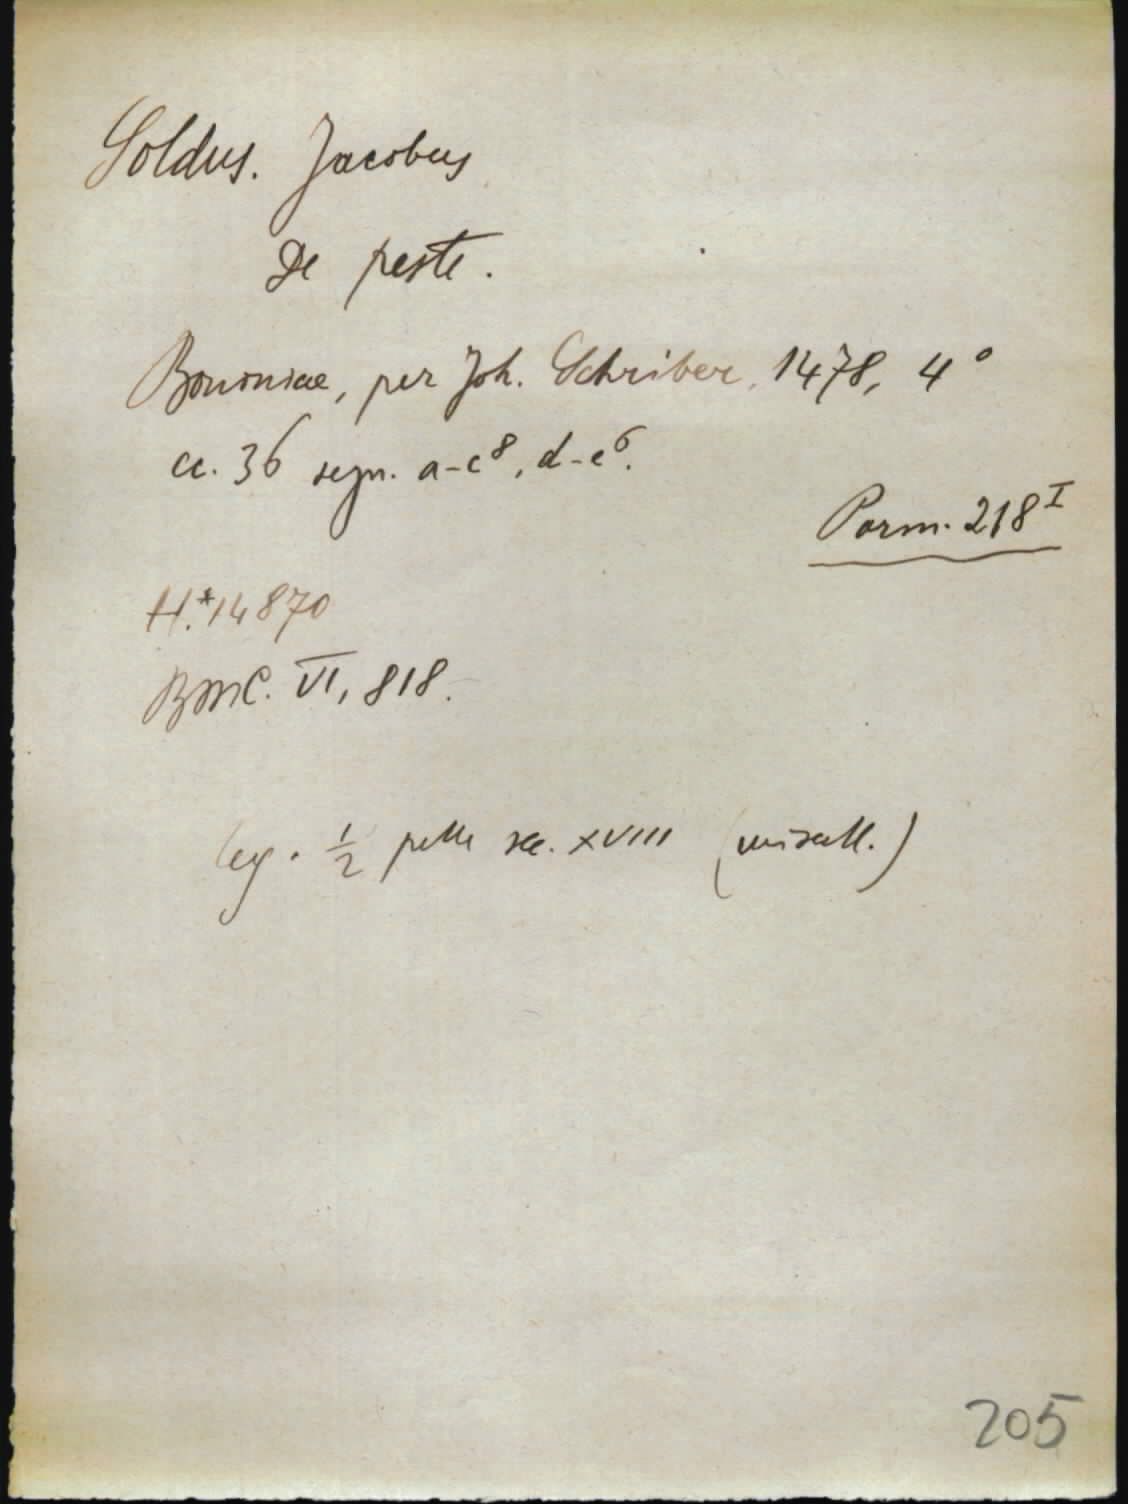 Soldus. Jacobus
De peste.
Bononiae, per Joh. Schriber, 1478, 4°
cc. 36 segn. a-c⁸, d-e⁶.
Parm. 218ᴵ
H.*14870
BMC. VI, 818.
leg. ½ pelle sec. XVIII (miscell.)
205